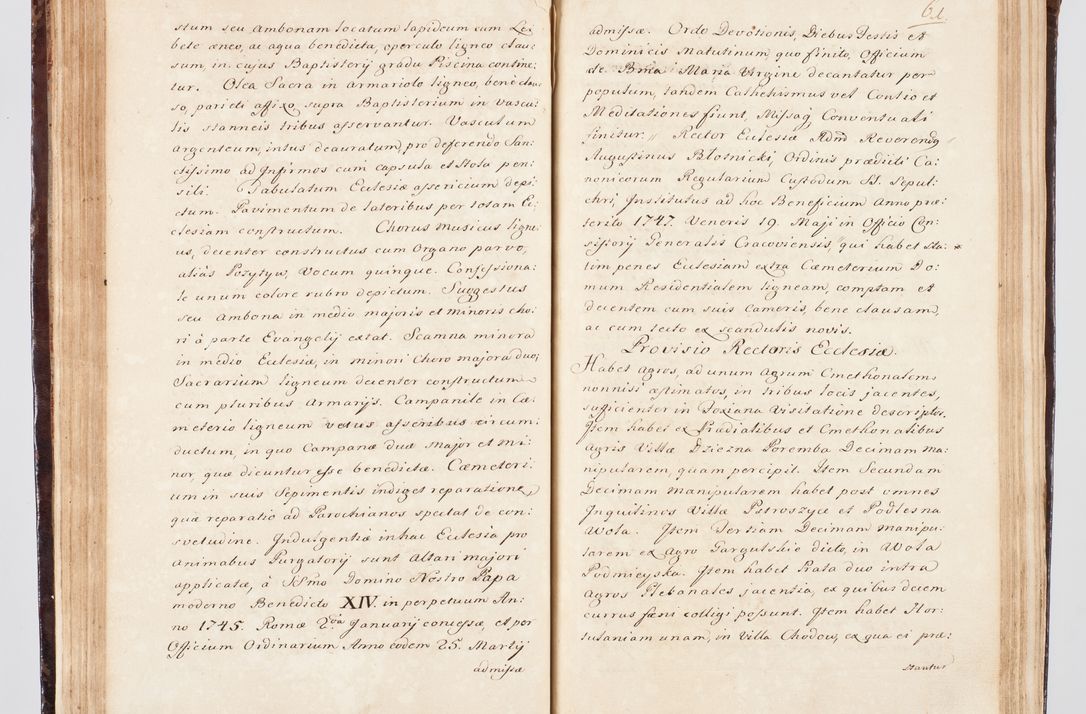 stum seu Ambonam locatum lapideum cum Le:
bete æneo, ac aqua benedicta, operculo ligneo clau:
sum, in cujus Baptisterij gradu Piscina contine:
tur. Olea Sacra in armariolo ligneo, bene clau:
so, parieti affixo supra Baptisterium in vascu:
lis stanneis tribus asservantur. Vasculum
argenteum, intus deauratum, pro deferendo San:
ctissimo ad Infirmos cum capsula et stola pen:
sili. Tabulatum Eclesiæ assericium depi:
ctum. Pavimentum de lateribus per totam Ec:
clesiam constructum. Chorus musicus ligne:
us, decenter constructus cum Organo parvo,
aliàs Pozytyw, Vocum quinque. Confessiona:
le unum colore rubro depictum. Suggestus
seu Ambona in medio majoris et minoris cho:
ri à parte Evangelij extat. Scamna minora
in medio Eclesiæ, in minori Choro majora duo;
Sacrarium ligneum decenter constructum
cum pluribus Armarijs. Campanile in Cæ:
meterio ligneum vetus asseribus circum:
ductum, in quo Campanæ duæ major et mi:
nor, quæ dicuntur esse benedictæ. Cæmeteri:
um in suis Sepimentis indiget reparatione,
quæ reparatio ad Parochianos spectat de con:
svetudine. Indulgentiæ in hac Eclesia pro
Animabus Purgatorij sunt Altari majori
applicatæ, à SSmo Domino Nostro Papa
moderno Benedicto XIV. in perpetuum An:
no 1745. Romæ 2da January concessæ, et per
Officium Ordinarium Anno eodem 25. Martij
admissæ
61.
admissæ. Ordo Devotionis, Diebus Festis et
Dominicis Matutinum, quo finito, Officium
de Bma Maria Virgine decantatur per
populum, tandem Cathehismus vel Contio et
Meditationes fiunt, Missaq Conventuali
finitur. // Rector Eclesiæ Adm Reverendq
Augustinus Błotnicki, Ordinis prædicti Ca:
nonicorum Regularium Custodum SS. Sepul:
chri, Institutus ad hoc Beneficium Anno præ:
terito 1747. Veneris 19. Maji in Officio Con:
sistorij Generalis Cracoviensis, qui habet sta:
tim penes Eclesiam extra Cæmeterium Do:
mum Residentialem ligneam, comptam et
decentem cum suis Cameris, bene clausam,
ac cum tecto ex scandulis novis.
Provisio Rectoris Ecclesiæ.
Habet agros, ad unum Agrum Cmethonalem
nonnisi æstimatos, in tribus locis jacentes,
sufficienter in Visitatione descriptos.
Item habet ex Prædialibus et Cmethonalibus
agris Villæ Dziezna Poremba Decimam ma:
nipularem, quam percipit. Item Secundam
Decimam manipularem habet post omnes
Inquilinos Villæ Pstroszyce et Podlesna
Wola. Item Tertiam Decimam manipu:
larem ex Agro Gargulskie dicto, in Wola
Podmieyska. Item habet Prata duo intra
Agros Plebanales jacentia, ex quibus decem
currus fæni colligi possunt. Item habet Hor:
tulaniam unam, in Villa Chodow, ex qua ei præ:
stantur